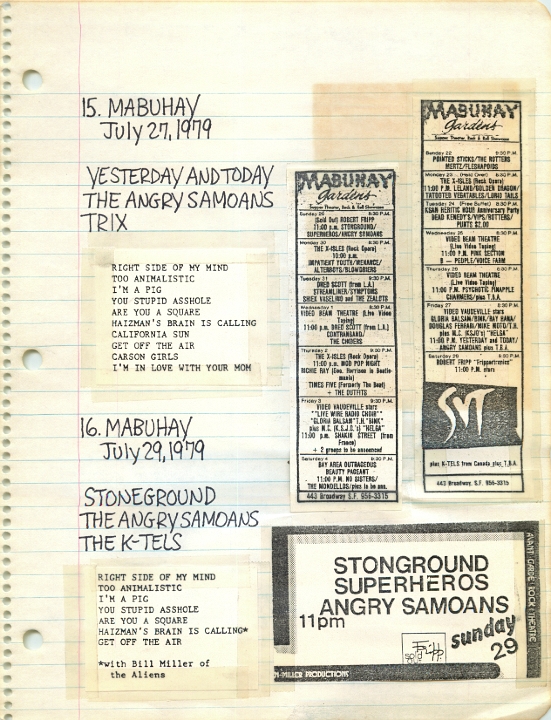 15. MABUHAY
July 27, 1979
YESTERDAY AND TODAY
THE ANGRY SAMOANS
TRIX
RIGHT SIDE OF MY MIND
TOO ANIMALISTIC
I'M A PIG
YOU STUPID ASSHOLE
ARE YOU A SQUARE
HAIZMAN'S BRAIN IS CALLING
CALIFORNIA SUN
GET OFF THE AIR
CARSON GIRLS
I'M IN LOVE WITH YOUR MOM
16. MABUHAY
July 29, 1979
STONEGROUND
THE ANGRY SAMOANS
THE K-TELS
RIGHT SIDE OF MY MIND
TOO ANIMALISTIC
I'M A PIG
YOU STUPID ASSHOLE
ARE YOU A SQUARE
HAIZMAN'S BRAIN IS CALLING*
GET OFF THE AIR
*with Bill Miller of
the Aliens
MABUHAY
Gardens
Supper Theater, Rock & Roll Showcase
Sunday 29 8:30 P.M.
(Sold Out) ROBERT FRIPP
11:00 p.m. STONGROUND/
SUPERHEROS/ANGRY SAMOANS
Monday 30 8:30 P.M.
THE X-ISLES (Rock Opera)
10:00 p.m.
IMPATIENT YOUTH/MENANCE/
ALTERBOYS/BLOWDRIERS
Tuesday 31 9:30 P.M.
DRED SCOTT (from L.A.)
STREAMLINER/SYMPTOMS
SHIEK VASELINO and THE ZEALOTS
Wednesday 1 8:30 P.M.
VIDEO BEAM THEATRE (Live Video
Taping)
11:00 p.m. DRED SCOTT (from L.A.)
CONTRABAND/
THE CHOIERS
Thursday 2 8:30 P.M.
THE X-ISLES (Rock Opera)
11:00 p.m. MOD POP NIGHT
RICHIE RAY (Geo. Harrison in Beatle-
mania)
TIMES FIVE (Formerly The Beat)
+ THE OUTFITS
Friday 3 8:30 P.M.
VIDEO VAUDEVILLE stars
"LIVE WIRE RADIO CHOIR"
"GLORIA BALSAM"/"N."BINK"
plus M.C. (K.S.J.O.'s) "HELGA"
11:00 p.m. SHAKIN STREET (from
France)
+ 2 groups to be announced
Saturday 4 8:30 P.M.
BAY AREA OUTRAGEOUS
BEAUTY PAGEANT
11:00 P.M. NO SISTERS/
THE MONDELLOS/plus to be ann.
443 Broadway S.F. 956-3315
MABUHAY
Gardens
Supper Theater, Rock & Roll Showcase
Sunday 22 9:30 P.M.
POINTED STICKS/THE ROTTERS
MERTZ/FLESHAPOIDS
Monday 23 (Held Over) 8:30 P.M.
THE X-ISLES (Rock Opera)
11:00 P.M. LELAND/GOLDEN DRAGON/
TATOOED VEGATABLES/LONG TAILS
Tuesday 24 (Free Buffet) 8:30 P.M.
KSAN HERITIC HOUR Anniversary Party
DEAD KENEDY'S/VIPS/ROTTERS/
PUNTS $2.00
Wednesday 25 8:30 P.M.
VIDEO BEAM THEATRE
(Live Video Taping)
11:00 P.M. PINK SECTION
B — PEOPLE/VOICE FARM
Thursday 26 8:30 P.M.
VIDEO BEAM THEATRE
(Live Video Taping)
11:00 P.M. PSYCHOTIC PINAPPLE
CHARMERS/plus T.B.A.
Friday 27 8:30 P.M.
VIDEO VAUDEVILLE stars
GLORIA BALSAM/BINK/RAY HANA/
DOUGLAS FERRARI/MIKE MOTO/T.N.
plus M.C. (KSJO's) "HELGA"
11:00 P.M. YESTERDAY and TODAY/
ANGRY SAMOANS plus T.B.A.
Saturday 28 8:30 P.M.
ROBERT FRIPP "Frippertronics"
11:00 P.M. stars
SVT
plus K-TELS from Canada plus T.B.A.
443 Broadway S.F. 956-3315
STONGROUND
SUPERHEROS
ANGRY SAMOANS
11pm
Fripp
sunday
29
AVANT GARDE ROCK THEATRE
MILLER PRODUCTIONS